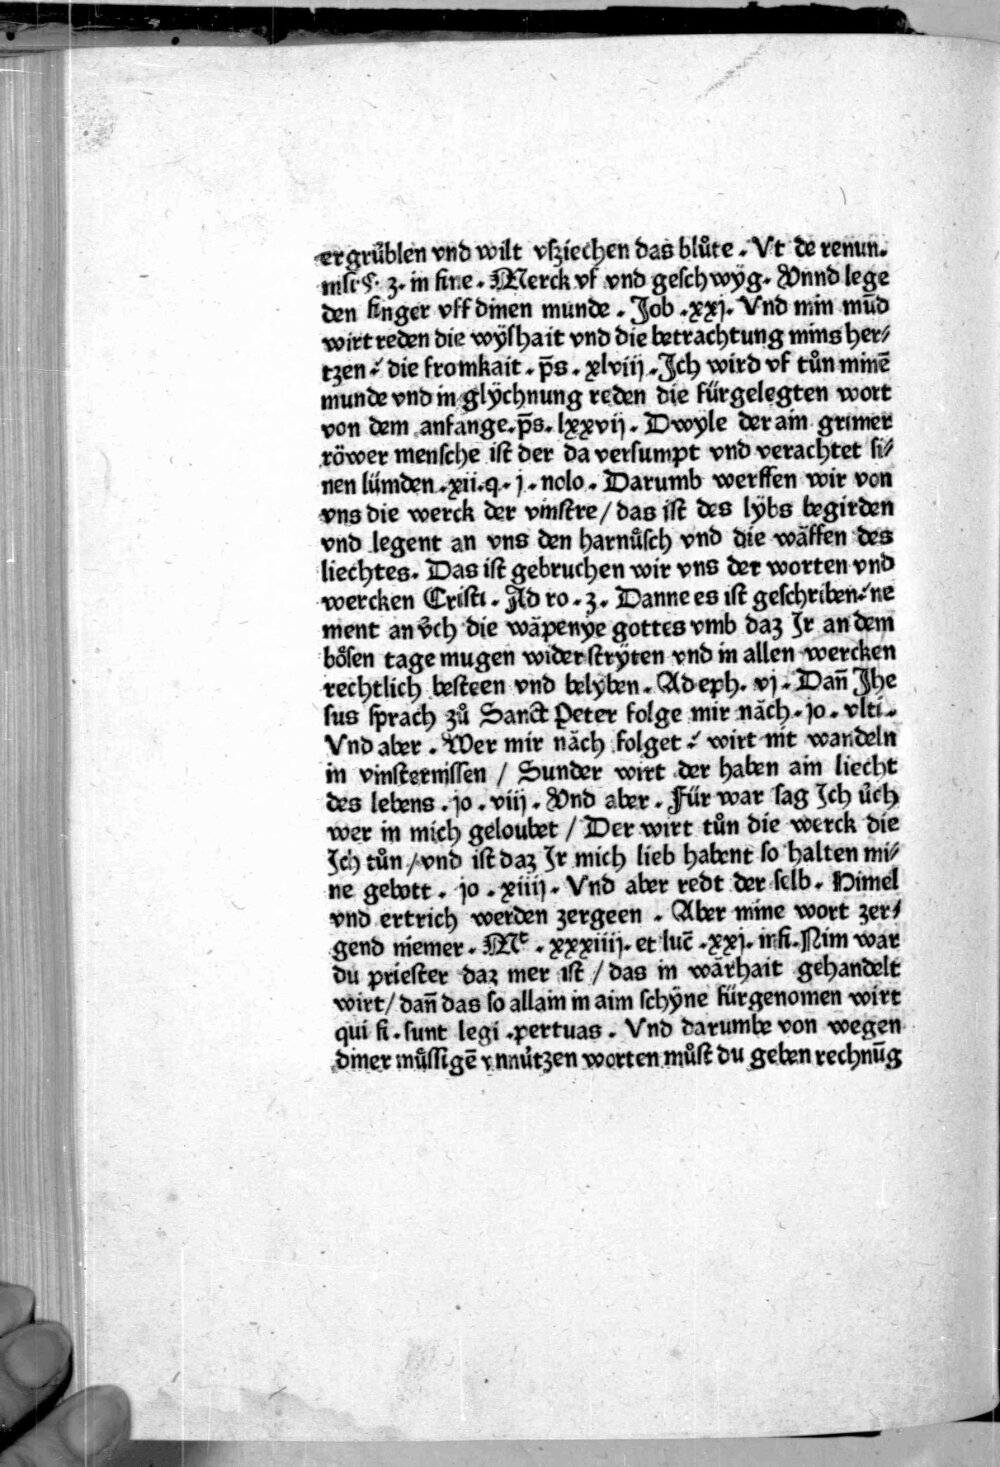 ergruͤblen vnd wilt vſziechen das bluͦte . Vt de renun.
mſi §. ʒ. in fine . Merck vf vnd geſchwÿg. Vnnd lege
den finger vff dinen munde . Job .xxj. Vnd min mūd
wirt reden die wÿſhait vnd die betrachtung mins her⸗
tzen⸗ die fromkait . p̄s . xlviij . Ich wird vf tuͦn minē
munde vnd in glÿchnung reden die fürgelegten wort
von dem anfange. p̄s. lxxvij . Dwyle der ain grimer
röwer menſche iſt der da verſumpt vnd verachtet ſi⸗
nen lümden .xii.q. j . nolo . Darumb werffen wir von
vns die werck der vinſtre / das iſt des lÿbs begirden
vnd legent an vns den harnuͤſch vnd die wāffen des
liechtes. Das iſt gebruchen wir vns der worten vnd
wercken Criſti . Ad ro . ʒ . Danne es iſt geſchriben⸗ ne
ment an uͤch die wāpenye gottes vmb daz Ir an dem
boͤſen tage mugen widerſtrÿten vnd in allen wercken
rechtlich beſteen vnd belyben . Ad eph. vj . Dan̄ Jhe
ſus ſprach zuͦ Sanct Peter folge mir nāch . jo . vlti .
Vnd aber . Wer mir nāch folget ⸗ wirt nit wandeln
in vinſterniſſen / Sunder wirt der haben ain liecht
des lebens . jo . viij . Vnd aber . Für war ſag Ich uͤch
wer in mich geloubet / Der wirt tuͦn die werck die
Ich tuͦn / vnd iſt daz Ir mich lieb habent ſo halten mi⸗
ne gebott . jo . xiiij . Vnd aber redt der ſelb . Himel
vnd ertrich werden zergeen . Aber mine wort zer⸗
gend niemer . Mᵗ . xxxiiij. et luc̄ .xxj. in fi. Nim war
du prieſter daz mer iſt / das in wārhait gehandelt
wirt / dan̄ das ſo allain in aim ſchÿne fürgenomen wirt
qui fi . ſunt legi . pertuas . Vnd darumbe von wegen
diner muͤſſigē vnnützen worten muͦſt du geben rechnūg